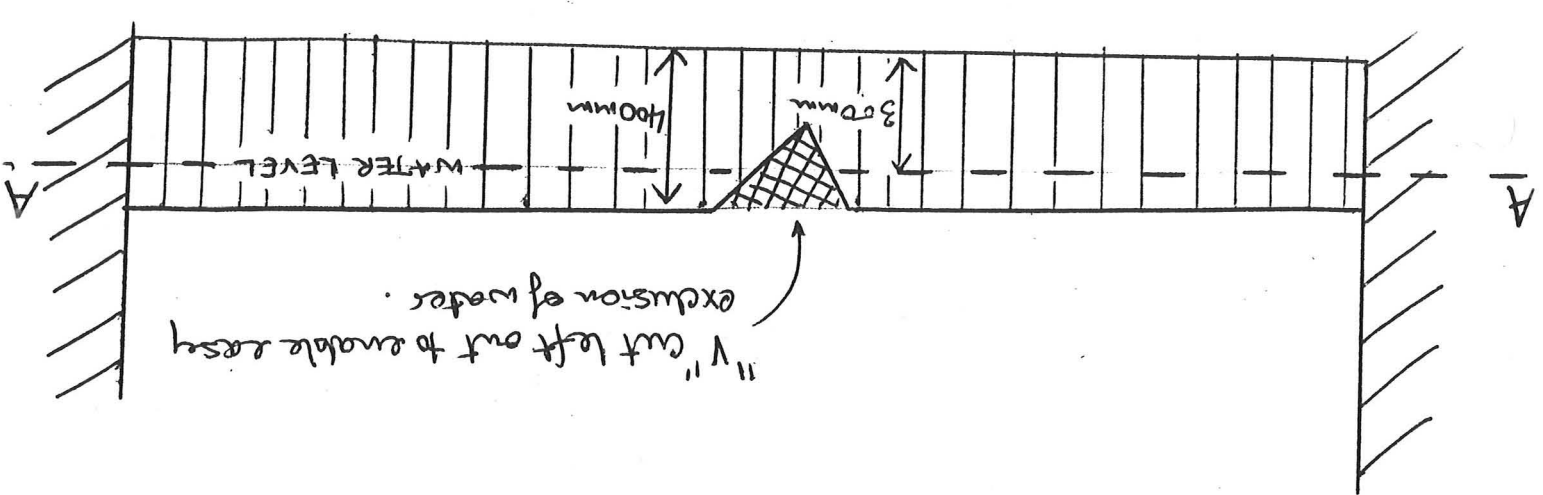 "V" cut left out to enable easey
exclusion of water.
A
WATER LEVEL
A
300mm
400mm